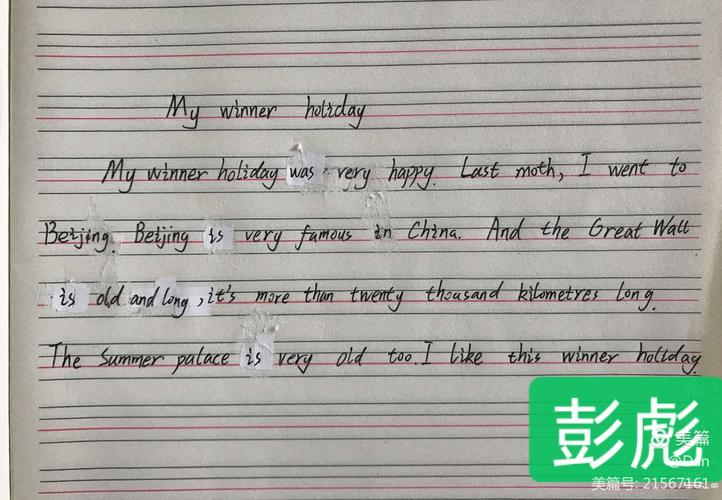 My winner holiday
My winner holiday was very happy. Last moth, I went to
Beijing. Beijing is very famous in China. And the Great Wall
is old and long, it's more than twenty thousand kilometres long.
The Summer palace is very old too. I like this winner holiday.
彭彪
美篇
@Dan
美篇号: 21567161